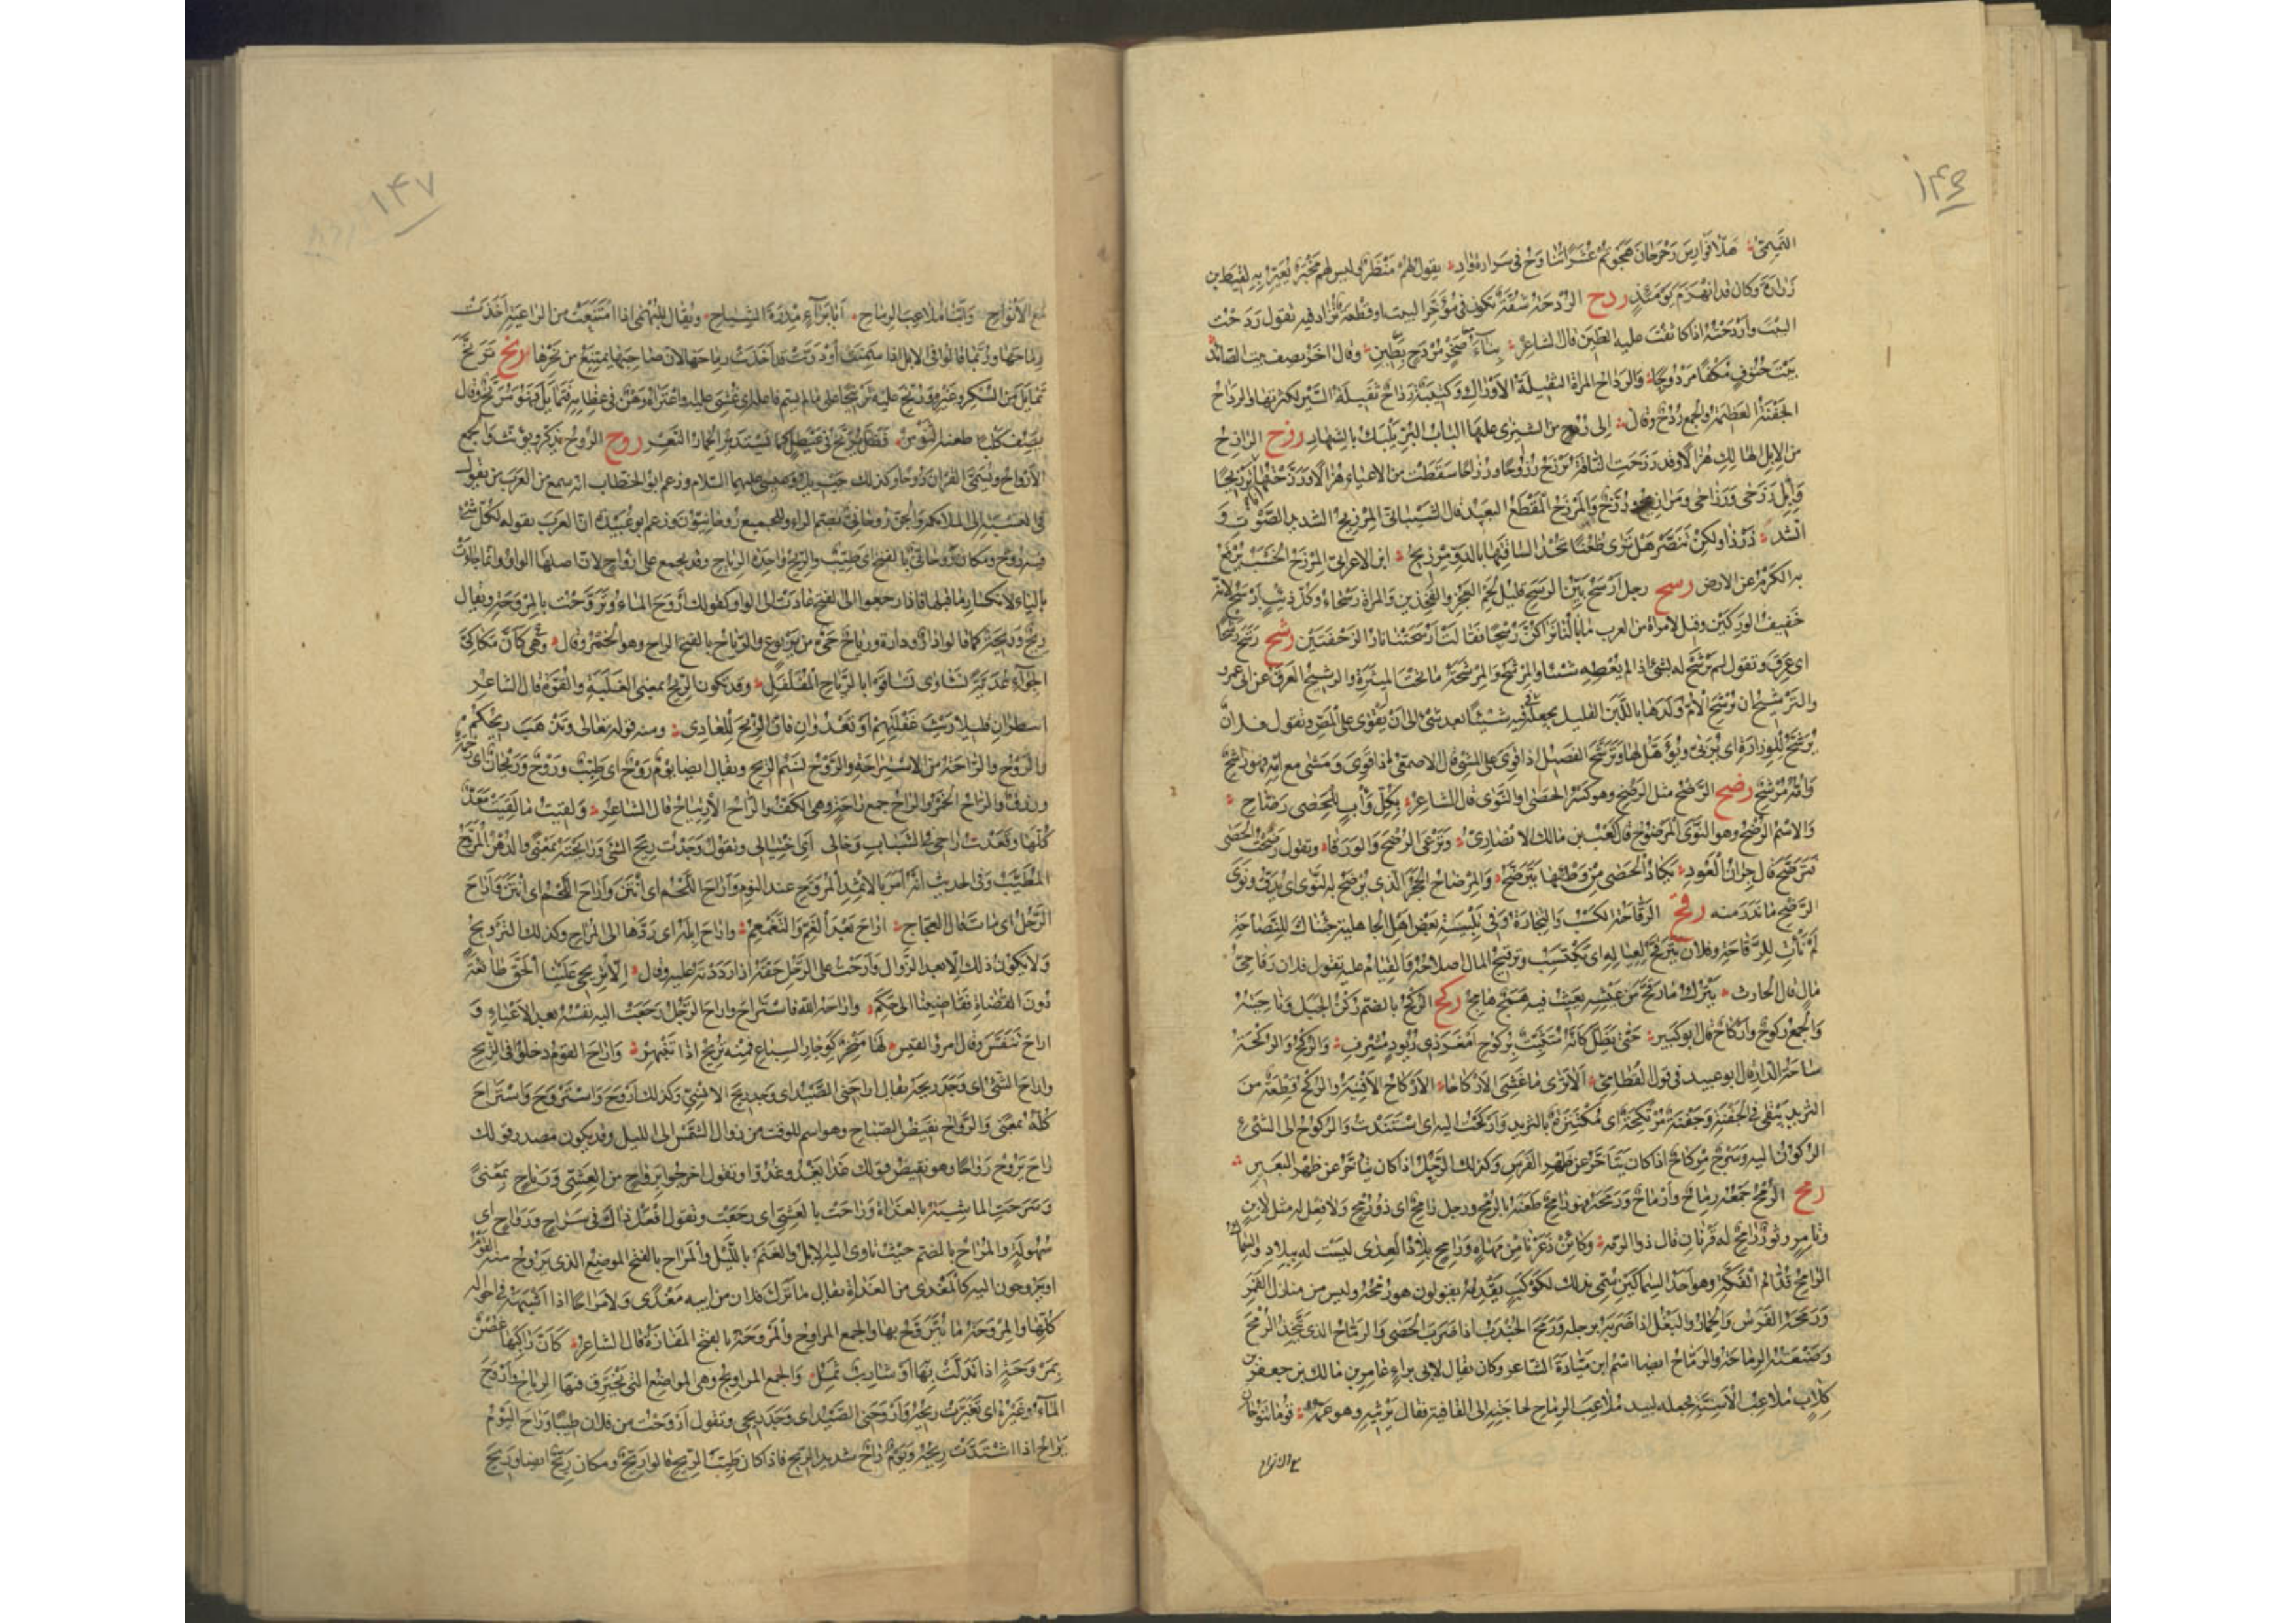 ١٤٦
التميمى هلا فوارس رحرحان هجوتهم عشرا تناوح فى سرارة واد يقول لهم منظر وليس لهم مخبر يعير به لقيط بن
زرارة وكان قد انهزم يومئذ ردح الردحة سترة تكون فى مؤخر البيت او قطعة تزاد فيه تقول ردحت
البيت وأردحته اذا كاثفت عليه الطين قال الشاعر بناء صخر مردح بطين وقال آخر يصف بيت الصائد
بيت حتوف مكفأ مردوحا والرداح المرأة الثقيلة الأوراك وكتيبة رداح ثقيلة السير لكثرتها والرداح
الجفنة العظيمة والجمع ردح وقال الى ردح من الشيزى عليها لباب البر يلبك بالشهاد رزح الرازح
من الابل الهالك هزالا وقد رزحت الناقة ترزح رزوحا ورزاحا سقطت من الاعياء هزالا ورزحتها ترزيحا
وابل رزحى ورزاحى ومرازيح ورزح والمرزح المقطع البعيد قال الشيبانى المرزيح الشديد الصوت و
انشد ذر ذا ولكن تبصر هل ترى ظعنا تحدى لساقتها بالدو مرزيح ابن الاعرابى المرزح الخشب يرفع
به الكرم عن الارض رسح رجل أرسح بين الرسح قليل لحم العجز والفخذين والمرأة رسحاء وكل ذئب أرسح لانه
خفيف الوركين وقيل لامرأة من العرب ما بالنا نراكن رسحا فقالت أرسحتنا نار الزحفتين رشح رشح رشحا
اى عرق وتقول لم يرشح له بشئ اذا لم يعطه شيئا والمرشح والمرشحة ما تحت الميثرة والرشيح العرق عن ابى عمرو
والترشيح ان ترشح الأم ولدها باللبن القليل تجعله فى فيه شيئا بعد شئ الى ان يقوى على المص وتقول فلان
يرشح للوزارة اى يربى ويؤهل لها وترشح الفصيل اذا قوى على المشى قال الاصمعى اذا قوى ومشى مع امه فهو راشح
وامه مرشح رضح الرضح مثل الرضخ وهو كسر الحصى او النوى قال الشاعر بكل وأب للحصى رضاح
والاسم الرضح وهو النوى المرضوح قال كعب بن مالك الانصارى وترعى الرضح والورقا وتقول رضحت الحصى
فترضح قال جران العود يكاد الحصى من وطئها يترضح والمرضاح الحجر الذى يرضح به النوى اى يدق ونوى
الرضح ما ندر منه رقح الرقاحة الكسب والتجارة وفى تلبية بعض اهل الجاهلية جئناك للنصاحة
لم نأت للرقاحة وفلان يترقح لعياله اى يكتسب وترقيح المال اصلاحه والقيام عليه تقول فلان رقاحى
مال قال الحارث يترك ما رقح من عيشه يعيث فيه همج هامج ركح الركح بالضم ركن الجبل وناحيته
والجمع ركوح واركاح قال ابو كبير حتى يظل كأنه متثبت بركوح أمعز ذى ريود مشرف والركح والركحة
ساحة الدار قال ابو عبيد فى قول القطامى ألا ترى ما غشى الأركاحا الأركاح الأفنية والركح قطعة من
الثريد يبقى فى الجفنة وجفنة مرتكحة اى مكتنزة بالثريد وأركحت اليه اى استندت والركوح الى الشئ
الركون اليه وسرج مركاح اذا كان يتأخر عن ظهر الفرس وكذلك الرحل اذا كان يتأخر عن ظهر البعير
رمح الرمح جمعه رماح وأرماح ورمحه فهو رامح طعنه بالرمح ورجل رامح اى ذو رمح ولا فعل له مثل لابن
وتامر وثور رامح له قرنان قال ذو الرمة وكائن ذعرنا من مهاة ورامح بلاد العدى ليست له ببلاد والسماك
الرامح قدام الفكة وهو احد السماكين سمى بذلك لكوكب يقدمه يقولون هو رمحه وليس من منازل القمر
ورمحه الفرس والحمار والبغل اذا ضربه برجله ورمح الجندب اذا ضرب الحصى والرماح الذى يتخذ الرمح
وصنعته الرماحة والرماح ايضا اسم ابن ميادة الشاعر وكان يقال لابى براء عامر بن مالك بن جعفر بن
كلاب ملاعب الأسنة فجعله لبيد ملاعب الرماح لحاجته الى القافية فقال يرثيه وهو عمه قوما تنوحان
مع الانواح
١٤٧
مع الأنواح وأبنا ملاعب الرماح أبا براء مدره الشياح ويقال للبهمى اذا امتنعت من الراعية اخذت
رماحها وربما قالوا فى الابل اذا سمنت أو درت قد أخذت رماحها لان صاحبها يمتنع من نحرها رنح ترنح
تمايل من السكر وغيره ورنح عليه ترنيحا على ما لم يسم فاعله اى غشى عليه واعتراه وهن فى عظامه فتمايل فهو مرنح وقال
يصف كلبا طعنه الثور فظل يرنح فى غيطل كما يستدير الحمار النعر روح الروح يذكر ويؤنث والجمع
الأرواح ويسمى القرآن روحا وكذلك جبريل وعيسى عليهما السلام وزعم ابو الخطاب انه سمع من العرب من يقول
فى النسبة الى الملائكة والجن روحانى بضم الراء والجميع روحانيون وزعم ابو عبيدة ان العرب تقوله لكل شئ
فيه روح ومكان روحانى بالفتح اى طيب والريح واحدة الرياح وقد يجمع على ارواح لان اصلها الواو وانما جاءت
بالياء لانكسار ما قبلها فاذا رجعوا الى الفتح عادت الى الواو كقولك أروح الماء وتروحت بالمروحة ويقال
ريح وريحة كما قالوا دار ودارة ورياح حى من يربوع والرياح بالفتح الراح وهو الخمر وقال كأن مكاكى
الجواء غدية نشاوى تساقوا بالرياح المفلفل وقد تكون الريح بمعنى الغلبة والقوة قال الشاعر
أتنظران قليلا ريث غفلتهم او تعدوان فان الريح للعادى ومنه قوله تعالى وتذهب ريحكم
والروح والراحة من الاستراحة والروح نسيم الريح ويقال ايضا يوم روح اى طيب وروح وريحان اى رحمة
ورزق والراح الخمر والراح جمع راحة وهى الكف والراح الارتياح قال الشاعر ولقيت ما لقيت معد
كلها وفقدت راحى فى الشباب وخالى اى اختيالى وتقول وجدت ريح الشئ ورائحته بمعنى والدهن المروح
المطيب وفى الحديث انه أمر بالاثمد المروح عند النوم وأراح اللحم اى أنتن وأراح
الرجل اى مات قال العجاج أراح بعد الغم والتغمغم وأراح ابله اى ردها الى المراح وكذلك الترويح
ولا يكون ذلك الا بعد الزوال وأرحت على الرجل حقه اذا رددته عليه وقال الا تريحى علينا الحق طائعة
دون القضاة فقاضينا الى حكم وأراحه الله فاستراح وأراح الرجل رجعت اليه نفسه بعد الاعياء و
أراح تنفس وقال امرؤ القيس لها منخر كوجار السباع فمنه تريح اذا تنبهر وأراح القوم دخلوا فى الريح
وأراح الشئ اى وجد ريحه يقال اراحنى الصيد اى وجد ريح الانسى وكذلك أروح واستروح واستراح
كله بمعنى والرواح نقيض الصباح وهو اسم للوقت من زوال الشمس الى الليل وقد يكون مصدر قولك
راح يروح رواحا وهو نقيض قولك غدا يغدو غدوا وتقول خرجوا برواح من العشى ورياح بمعنى
وسرحت الماشية بالغداة وراحت بالعشى اى رجعت وتقول افعل ذاك فى سراح ورواح اى
سهولة والمراح بالضم حيث تأوى اليه الابل والغنم بالليل والمراح بالفتح الموضع الذى يروح منه القوم
او يروحون اليه كالمغدى من الغداة يقال ما ترك فلان من ابيه مغدى ولا مراحا اذا اشبهه فى احواله
كلها والمروحة ما يتروح بها والجمع المراوح والمروحة بالفتح المفازة قال الشاعر كأن راكبها غصن
بمروحة اذا تدلت به او شارب ثمل والجمع المراويح وهى المواضع التى تخترق فيها الرياح وأروح
الماء وغيره اى تغيرت ريحه وأروحنى الصيد اى وجد ريحى وتقول أروحت من فلان طيبا وراح اليوم
يراح اذا اشتدت ريحه ويوم راح شديد الريح فاذا كان طيب الريح قالوا ريح ومكان ريح ايضا وريح